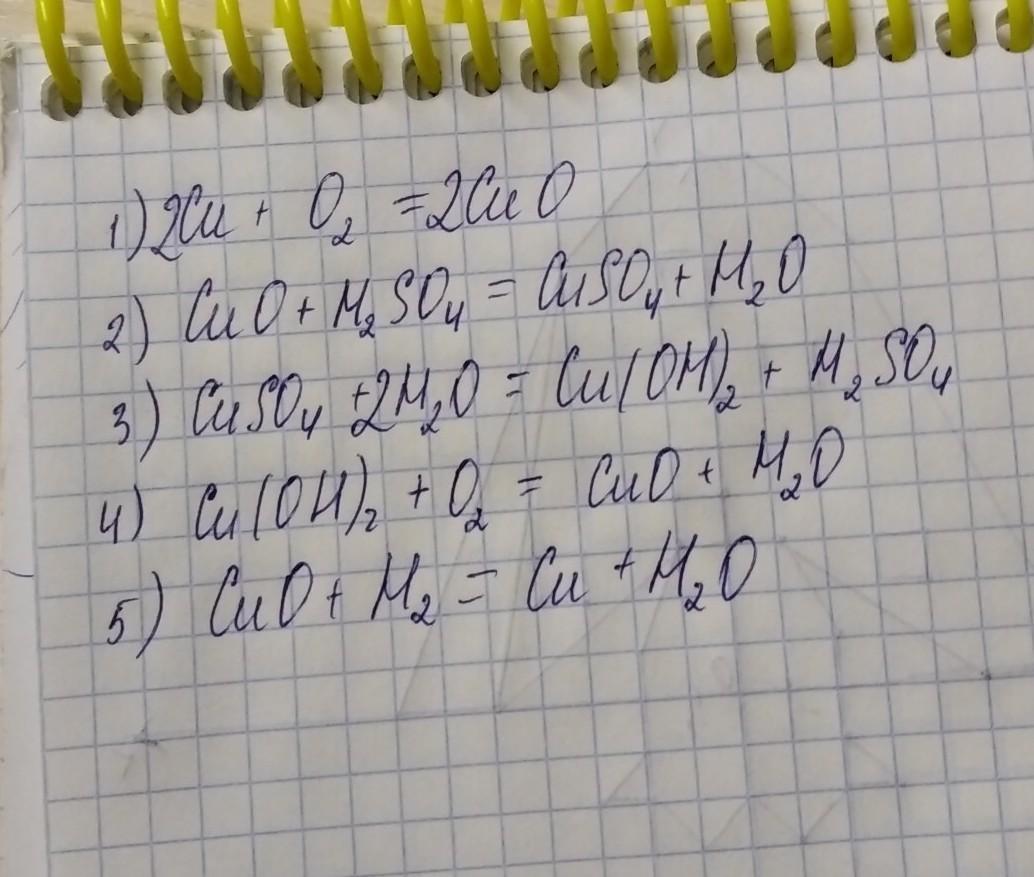 1) 2Cu + O₂ = 2CuO
2) CuO + H₂SO₄ = CuSO₄ + H₂O
3) CuSO₄ + 2H₂O = Cu(OH)₂ + H₂SO₄
4) Cu(OH)₂ + O₂ = CuO + H₂O
5) CuO + H₂ = Cu + H₂O